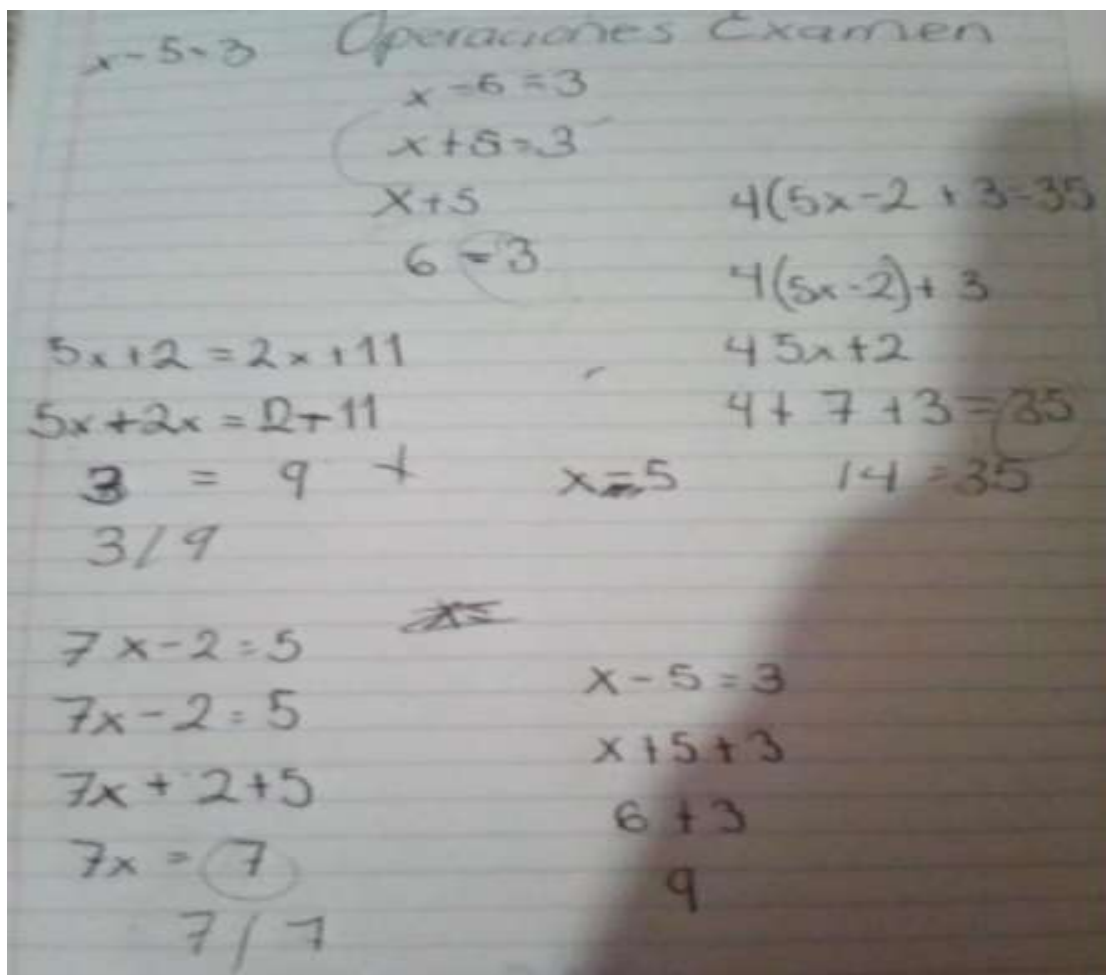 x-5=3 Operaciones Examen
x-6=3
x+5=3
x+5
6=3
4(5x-2+3=35
4(5x-2)+3
4 5x+2
4+7+3=35
14=35
5x+2=2x+11
5x+2x=2+11
3 = 9 +
3/9
x=5
7x-2=5
7x-2=5
7x+2+5
7x=7
7/7
x=
x-5=3
x+5+3
6+3
9